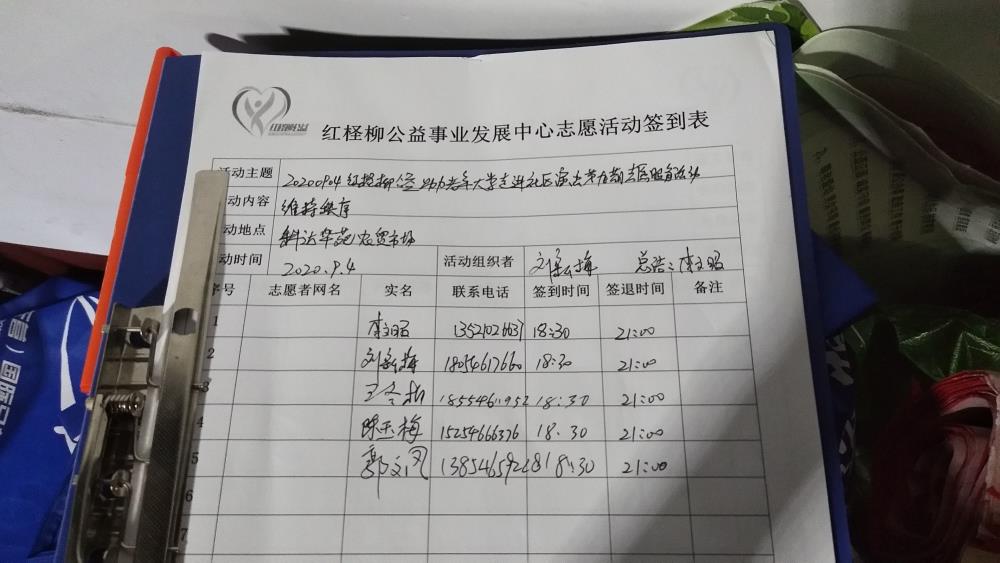 红柽柳公益事业发展中心志愿活动签到表
活动主题 20200904红柽柳公益助力老年大学走进社区演出第九期志愿服务活动
动内容 维持秩序
动地点 科达华苑农贸市场
动时间 2020.9.4 活动组织者 刘、梅 总浩：李文昭
序号 志愿者网名 实名 联系电话 签到时间 签退时间 备注
1 李文昭 1352102663 18:30 21:00
2 刘 梅 18054617660 18:30 21:00
3 王冬 1855461 952 18:30 21:00
4 陈玉梅 15254666376 18:30 21:00
5 郭文凤 138546592281 8:30 21:00
6
7
国际